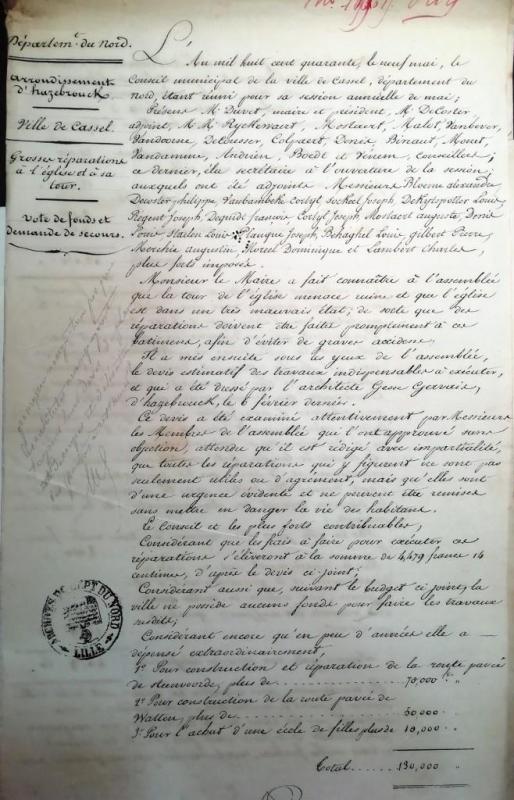 Départem.t du Nord.
arrondissement
d'hazebrouck.
Ville de Cassel.
Grosses réparations
à l'église et à sa
tour.
vote de fonds et
demande de secours.
L'An mil huit cent quarante, le neuf mai, le
Conseil municipal de la ville de Cassel, département du
nord, étant réuni pour sa session annuelle de mai;
Présens M.r Duvet, maire et président, M.r DeCoster
adjoint, M.M. Ryckewaert, Mostaert, Malot, Vanbever,
Vandoorne, Delousser, Colpaert, Denis, Benaut, Monet,
Vandamme, Andrien, Boedt et Venem, conseillers;
ce dernier, élu secrétaire à l'ouverture de la session;
auxquels ont été adjoints Messieurs Bloeme alexandre,
Dewster philippe, Vanbambeke Cortyl Joseph, DeKytspotter Louis
Regent Joseph, Dequidt francois, Cortyl Joseph, Mostaert auguste, Denis
Louis Staelen Louis, Planque Joseph, Béhaghel Louis, gilbert Pierre,
Morchie augustin, Dominique et Lambert Charles,
plus forts imposés.
Monsieur le Maire a fait connaître à l'assemblée
que la tour de l'église menace ruine et que l'église
est dans un très mauvais état; de sorte que des
réparations doivent être faites promptement à ces
batimens, afin d'éviter de graves accidens.
Il a mis ensuite sous les yeux de l'assemblée,
le devis estimatif des travaux indispensables à exécuter,
et qui a été dressé par l'architecte Gervais,
d'hazebrouck, le 6 février dernier.
Ce devis a été examiné attentivement par Messieurs
les Membres de l'assemblée qui l'ont approuvé sans
objection, attendu qu'il est rédigé avec impartialité,
que toutes les réparations qui y figurent ne sont pas
seulement utiles ou d'agrément, mais qu'elles sont
d'une urgence évidente et ne peuvent être remises
sans mettre en danger la vie des habitans.
Le Conseil et les plus forts contribuables,
Considérant que les frais à faire pour exécuter ces
réparations s'éléveront à la somme de 4,479 francs 14
centimes, d'après le devis ci-joint;
Considérant aussi que, suivant le budget ci joint, la
ville ne possède aucuns fonds pour faire les travaux
susdits;
Considérant encore qu'en peu d'années elle a
dépensé extraordinairement,
1.° Pour construction et réparation de la route pavée
de steenvoorde, plus de . . . . . . . . . . 70,000 f. "
2.° Pour construction de la route pavée de
Watten, plus de . . . . . . . . . . 50,000 "
3.° Pour l'achat d'une école de filles plus de 10,000 "
Total . . . . . . 130,000 "
ARCHIVES DU DEPT DU NORD
LILLE